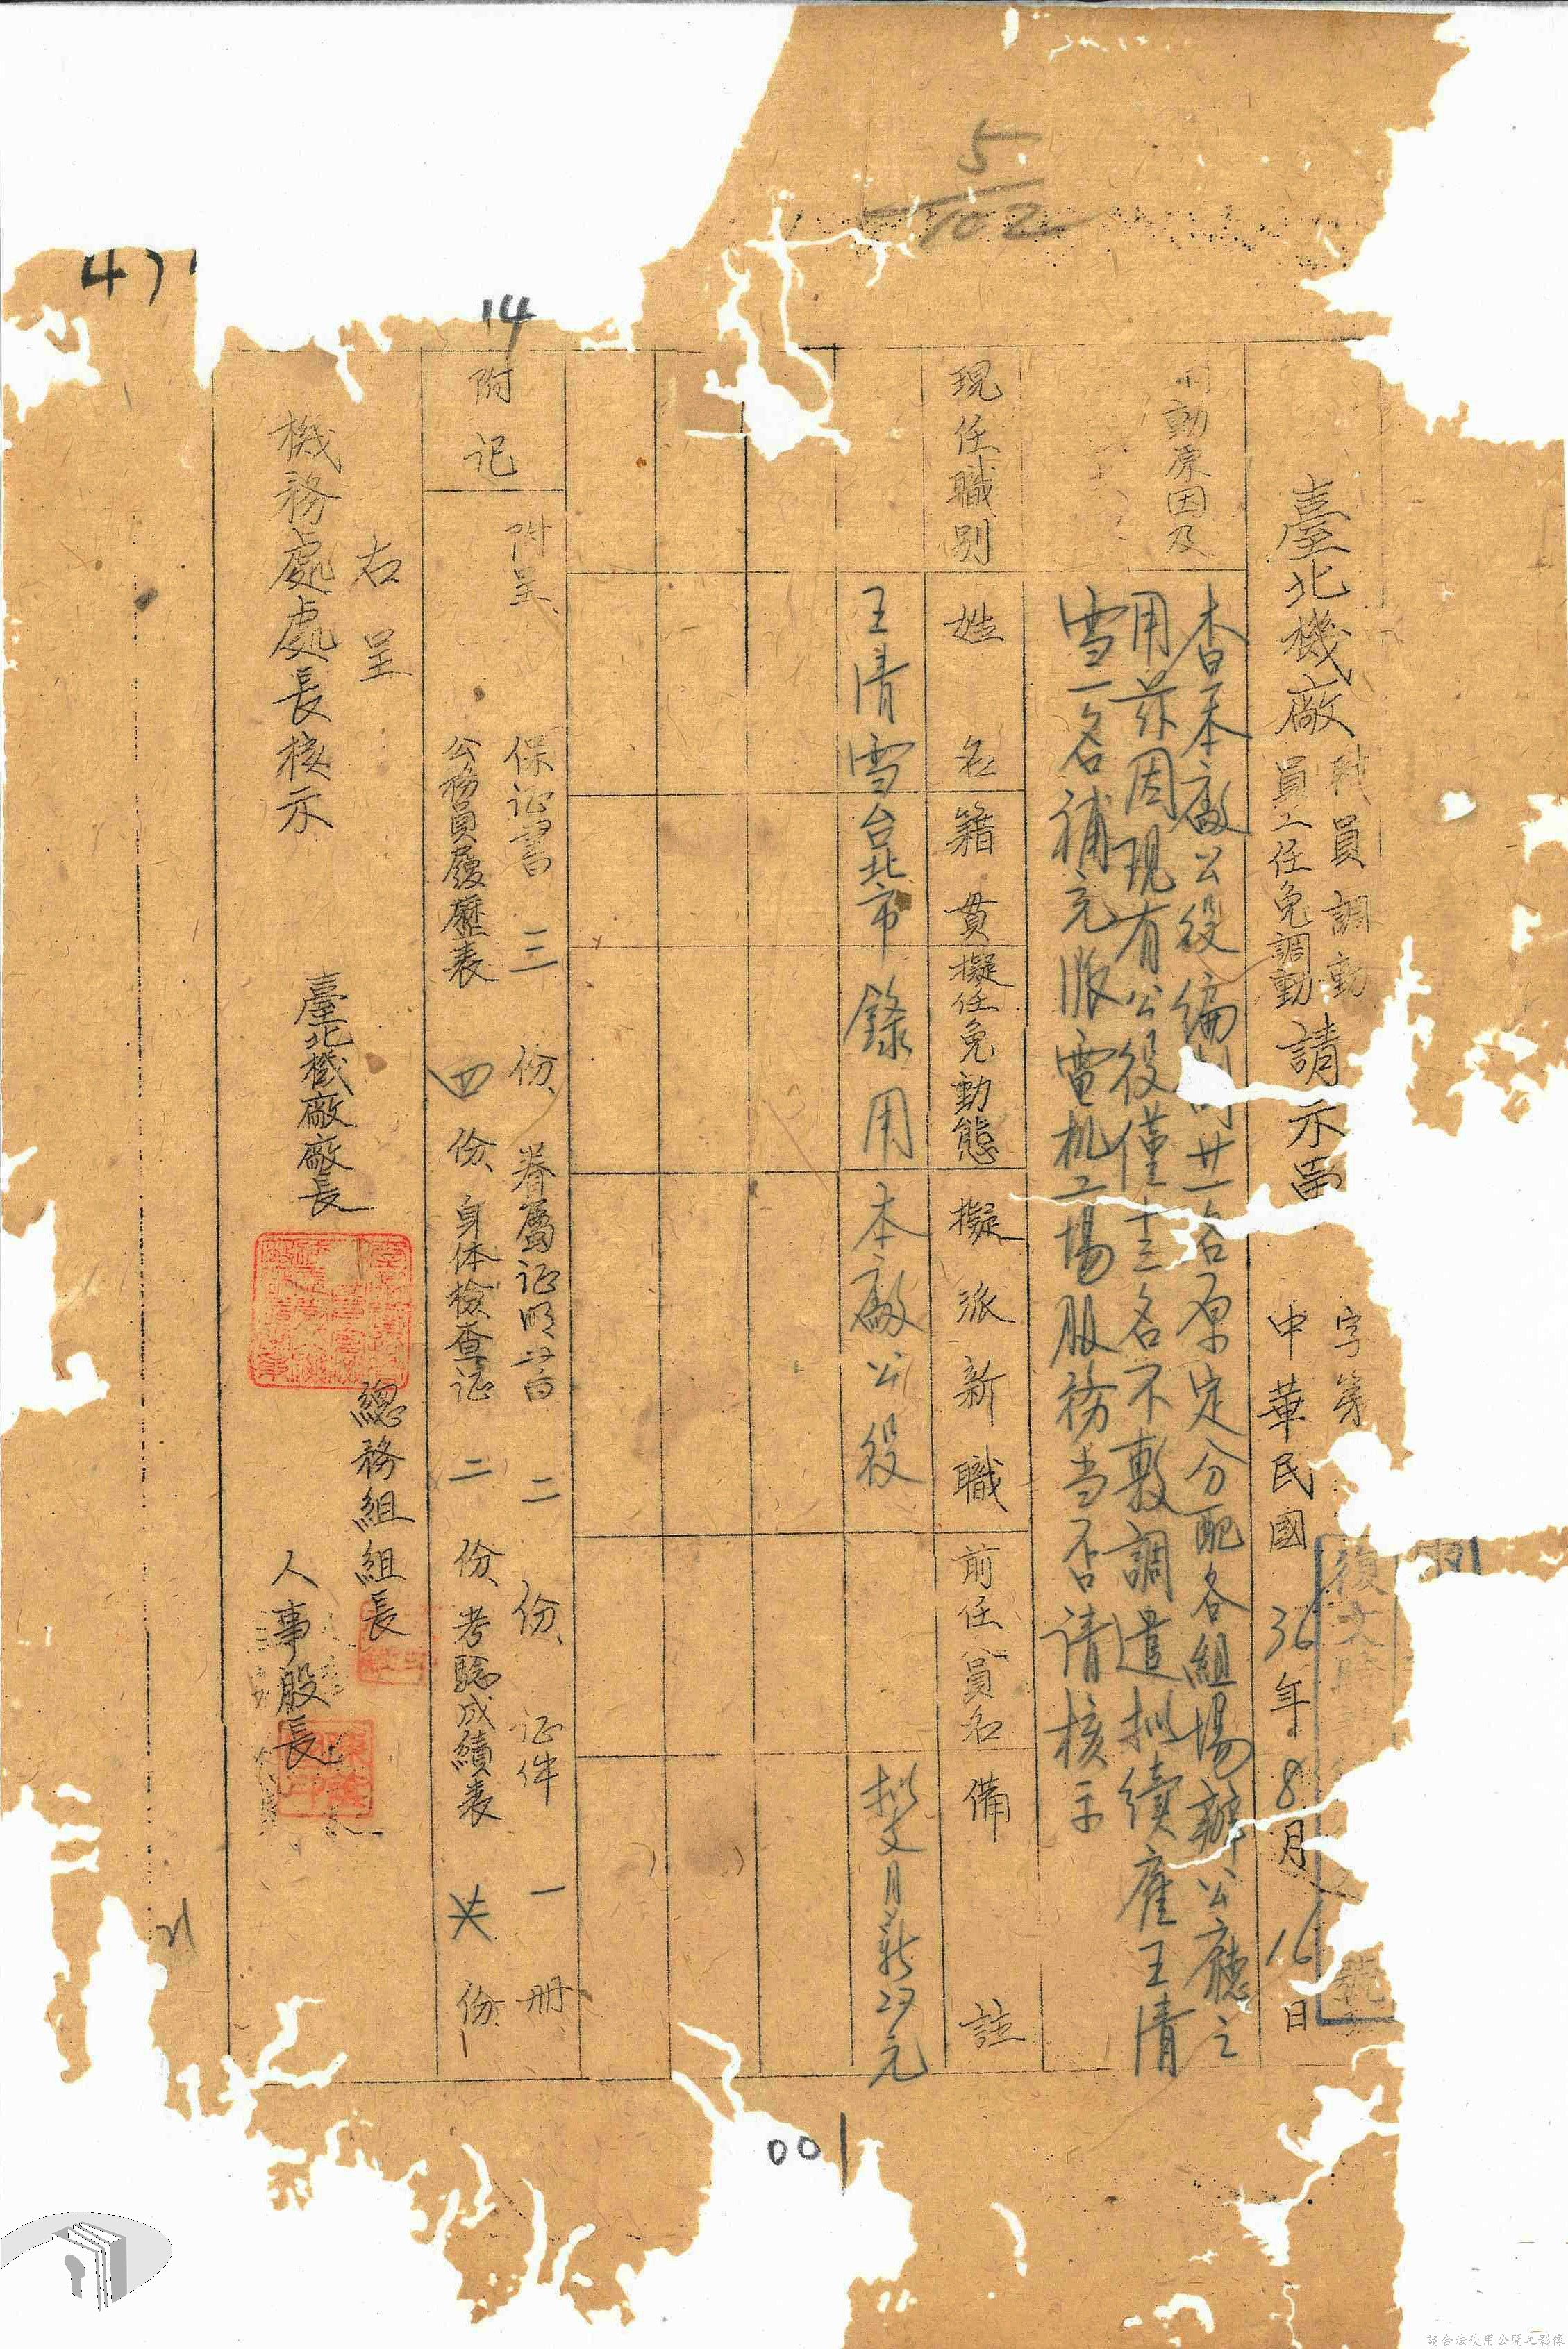 5
102
47
14
臺北機廠
職員調動
員工任免調動
請示單
字第
中華民國36年8月16日
復文時
號
動原因及
查本廠公役編制廿一名原定分配各組場辦公廳之
用茲因現有公役僅十三名不敷調遣拟續雇王清
雪一名補充服電机工場服務当否请核示
現任職別
姓名
籍貫
擬任免動態
擬派新職
前任員名
備註
王清雪
台北市
錄用
本廠公役
拟支月薪
元
附記
附呈
保証書三份、眷属証明書二份、証件一册
公務員履歷表四份、身体檢查証二份、考驗成績表 份
右呈
機務處處長核示
臺北機廠廠長
總務組組長
人事股長
21
001
請合法使用公開之影像